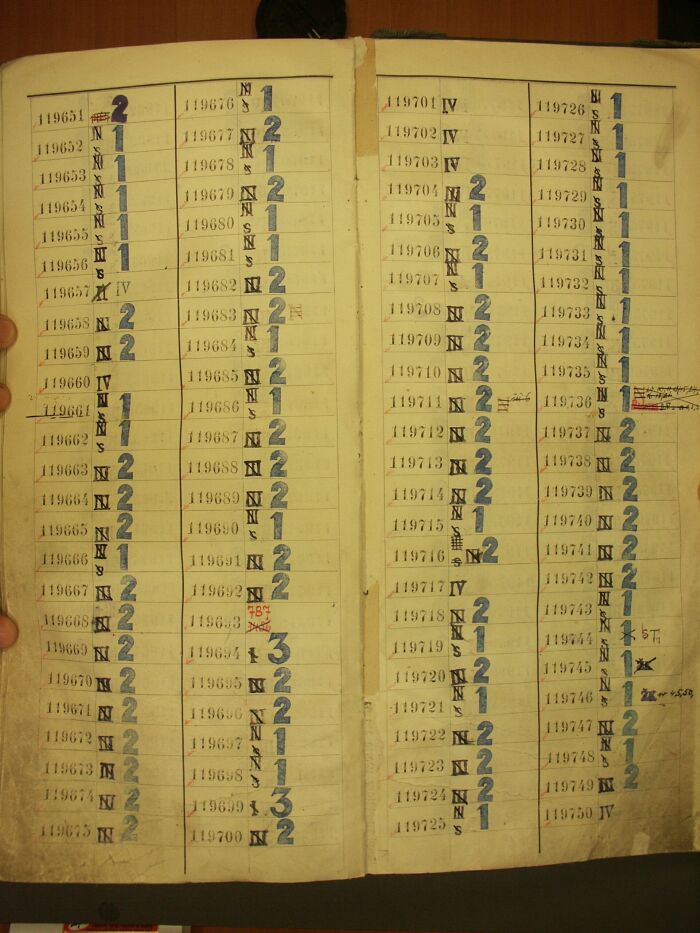 119651 2
119652 N s 1
119653 N s 1
119654 N s 1
119655 N s 1
119656 N s 1
119657 IV
119658 N 2
119659 N 2
119660 IV
119661 N s 1
119662 N s 1
119663 N 2
119664 N 2
119665 N 2
119666 N s 1
119667 N 2
119668 N 2
119669 N 2
119670 N 2
119671 N 2
119672 N 2
119673 N 2
119674 N 2
119675 N 2
119676 N s 1
119677 N 2
119678 N s 1
119679 N 2
119680 N s 1
119681 N s 1
119682 N 2
119683 N 2
119684 N s 1
119685 N 2
119686 N s 1
119687 N 2
119688 N 2
119689 N 2
119690 N s 1
119691 N 2
119692 N 2
119693 787
119694 1 3
119695 N 2
119696 N 2
119697 N s 1
119698 N s 1
119699 1 3
119700 N 2
119701 IV
119702 IV
119703 IV
119704 N 2
119705 N s 1
119706 N 2
119707 N s 1
119708 N 2
119709 N 2
119710 N 2
119711 N 2
119712 N 2
119713 N 2
119714 N 2
119715 N s 1
119716 s N 2
119717 IV
119718 N 2
119719 N s 1
119720 N 2
119721 N s 1
119722 N 2
119723 N 2
119724 N 2
119725 N s 1
119726 N s 1
119727 N s 1
119728 N s 1
119729 N s 1
119730 N s 1
119731 N s 1
119732 N s 1
119733 N s 1
119734 N s 1
119735 N s 1
119736 N s 1
119737 N 2
119738 N 2
119739 N 2
119740 N 2
119741 N 2
119742 N 2
119743 N s 1
119744 N s 1
119745 N s 1
119746 N s 1
119747 N 2
119748 N s 1
119749 N 2
119750 IV